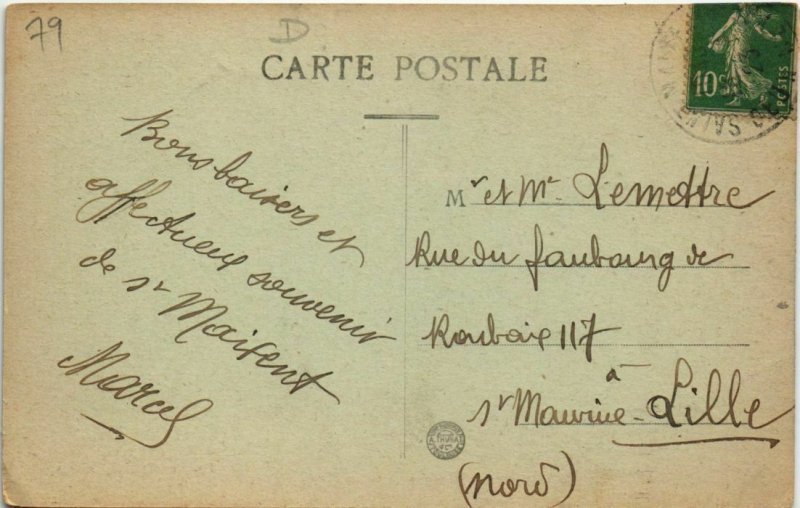 79
D
CARTE POSTALE
Bons baisers et
affectueux souvenir
de st Maixent
Marcel
Mr et Me Lemettre
Rue du faubourg de
Roubaix 117
à
st Maurice - Lille
(Nord)
10c
POSTES